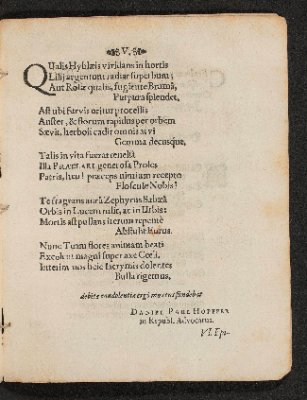 V.
QUalis Hyblæis viridans in hortis
Lilij argentum radiat superbum;
Aut Rosæ qualis, fugiente Brumâ,
Purpura splendet.
Ast ubi sævis oritur procellis
Auster, & florum rapidus per orbem
Sævit, herbosi cadit omnis ævi
Gemma decusque.
Talis in vita fuerat tenellâ
Illa generosa Proles
Patris, heu! præceps nimium recepto
Flosculo Nobis!
Te fragrans aurâ Zephyrus
Orbis in Lucem tulit, at in Urbis:
Mortis ast pullans iterum repentè
Abstulit
Nunc Tuum flores animam beati
Excolunt magni super axe Cœli.
Interim nos hîc lacrymis dolentes
Busta rigemus.
debitæ condolentiæ ergò
DANIEL PAUL HOFFER
in Republ. Advocatus.